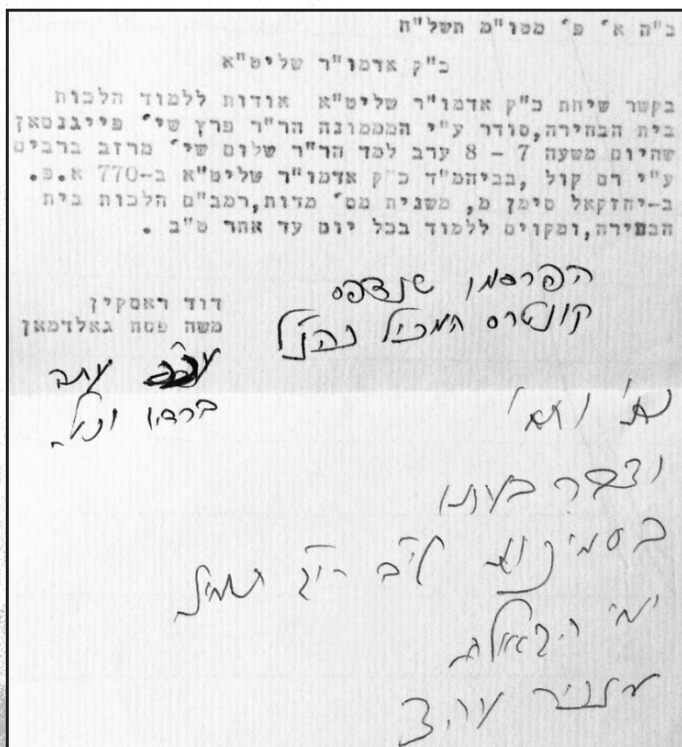 ב"ה א' פ' מטו"מ תשל"ח
כ"ק אדמו"ר שליט"א
בקשר שיחת כ"ק אדמו"ר שליט"א אודות ללמוד הלכות
בית הבחירה,סודר ע"י הממונה הר"ר פרץ שי' פייגנסאן
שהיום משעה 7 - 8 ערב למד הר"ר שלום שי' מרזב ברבים
ע"י רם קול ,בביהמ"ד כ"ק אדמו"ר שליט"א ב-770 א.פ.
ב-יחזקאל סימן מ, משנית מס' מדות,רמב"ם הלכות בית
הבחירה,ומקוים ללמוד בכל יום עד אחר ט"ב .
דוד ראסקין
משה פסח גאלדמאן
הפרסמו שנדפס
קונטרס המכיל כהנ"ל
עתה
ברדיו
ודבר בעתו
לי"ב י"ג
ימי הגאולה
אזכיר עה"צ